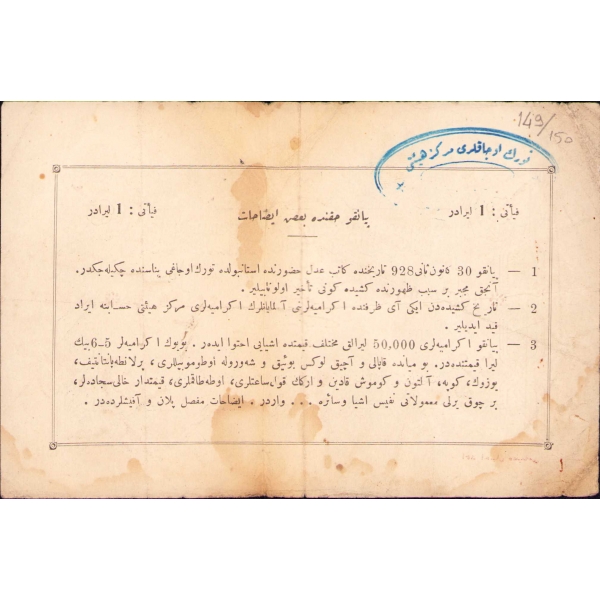 149/150
تورك اوجاقلری مركز هیئتی
فیأتی : 1 لیرادر
پیانقو حقنده بعض ایضاحات
فیأتی : 1 لیرادر
1 — پیانقو 30 كانون ثانی 928 تاریخنده كاتب عدل حضورنده استانبولده تورك اوجاغی بناسنده چكیله‌جكدر.
آنجق مجبر بر سبب ظهورنده كشیده كونی تأخیر اولونه‌بیلیر.
2 — تاریخ كشیده‌دن ایكی آی ظرفنده اكرامیه‌لرینی آلمایانلرك اكرامیه‌لری مركز هیئتی حسابنه ایراد
قید ایدیلیر.
3 — پیانقو اكرامیه‌لری 50,000 لیرالق مختلف قیمتده اشیایی احتوا ایدەر. بویوك اكرامیه‌لر 5–6 بیك
لیرا قیمتنده‌در. بو میانده قاپالی و آچیق لوكس بوئیق و شه‌وروله اوطوموبیللری، پرلانطه پانتانتیف،
یوزوك، كوپه، آلتون و كوموش قادین و اركك قول ساعتلری، اوطه طاقملری، قیمتدار خالی سجاده‌لر،
بر چوق یرلی معمولاتی نفیس اشیا وسائره . . . واردر . ایضاحات مفصل پلان و آفیشلرده‌در .